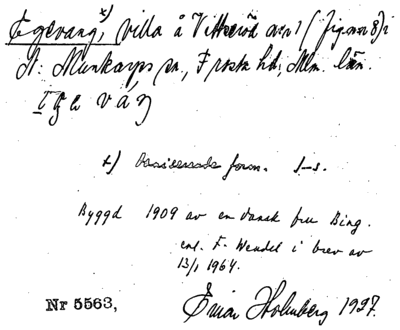 Egevang, x) villa å Vitseröd avs 1 (fig. nr 8) i
N: Munkarps sn., Frosta hd, Mlm. län.
Ege váŋ
x) form. f-s.
Byggd 1909 av en dansk fru Bing.
enl. F. Wendel i brev av
13/1 1964.
Nr 5563, Einar Holmberg 1927.